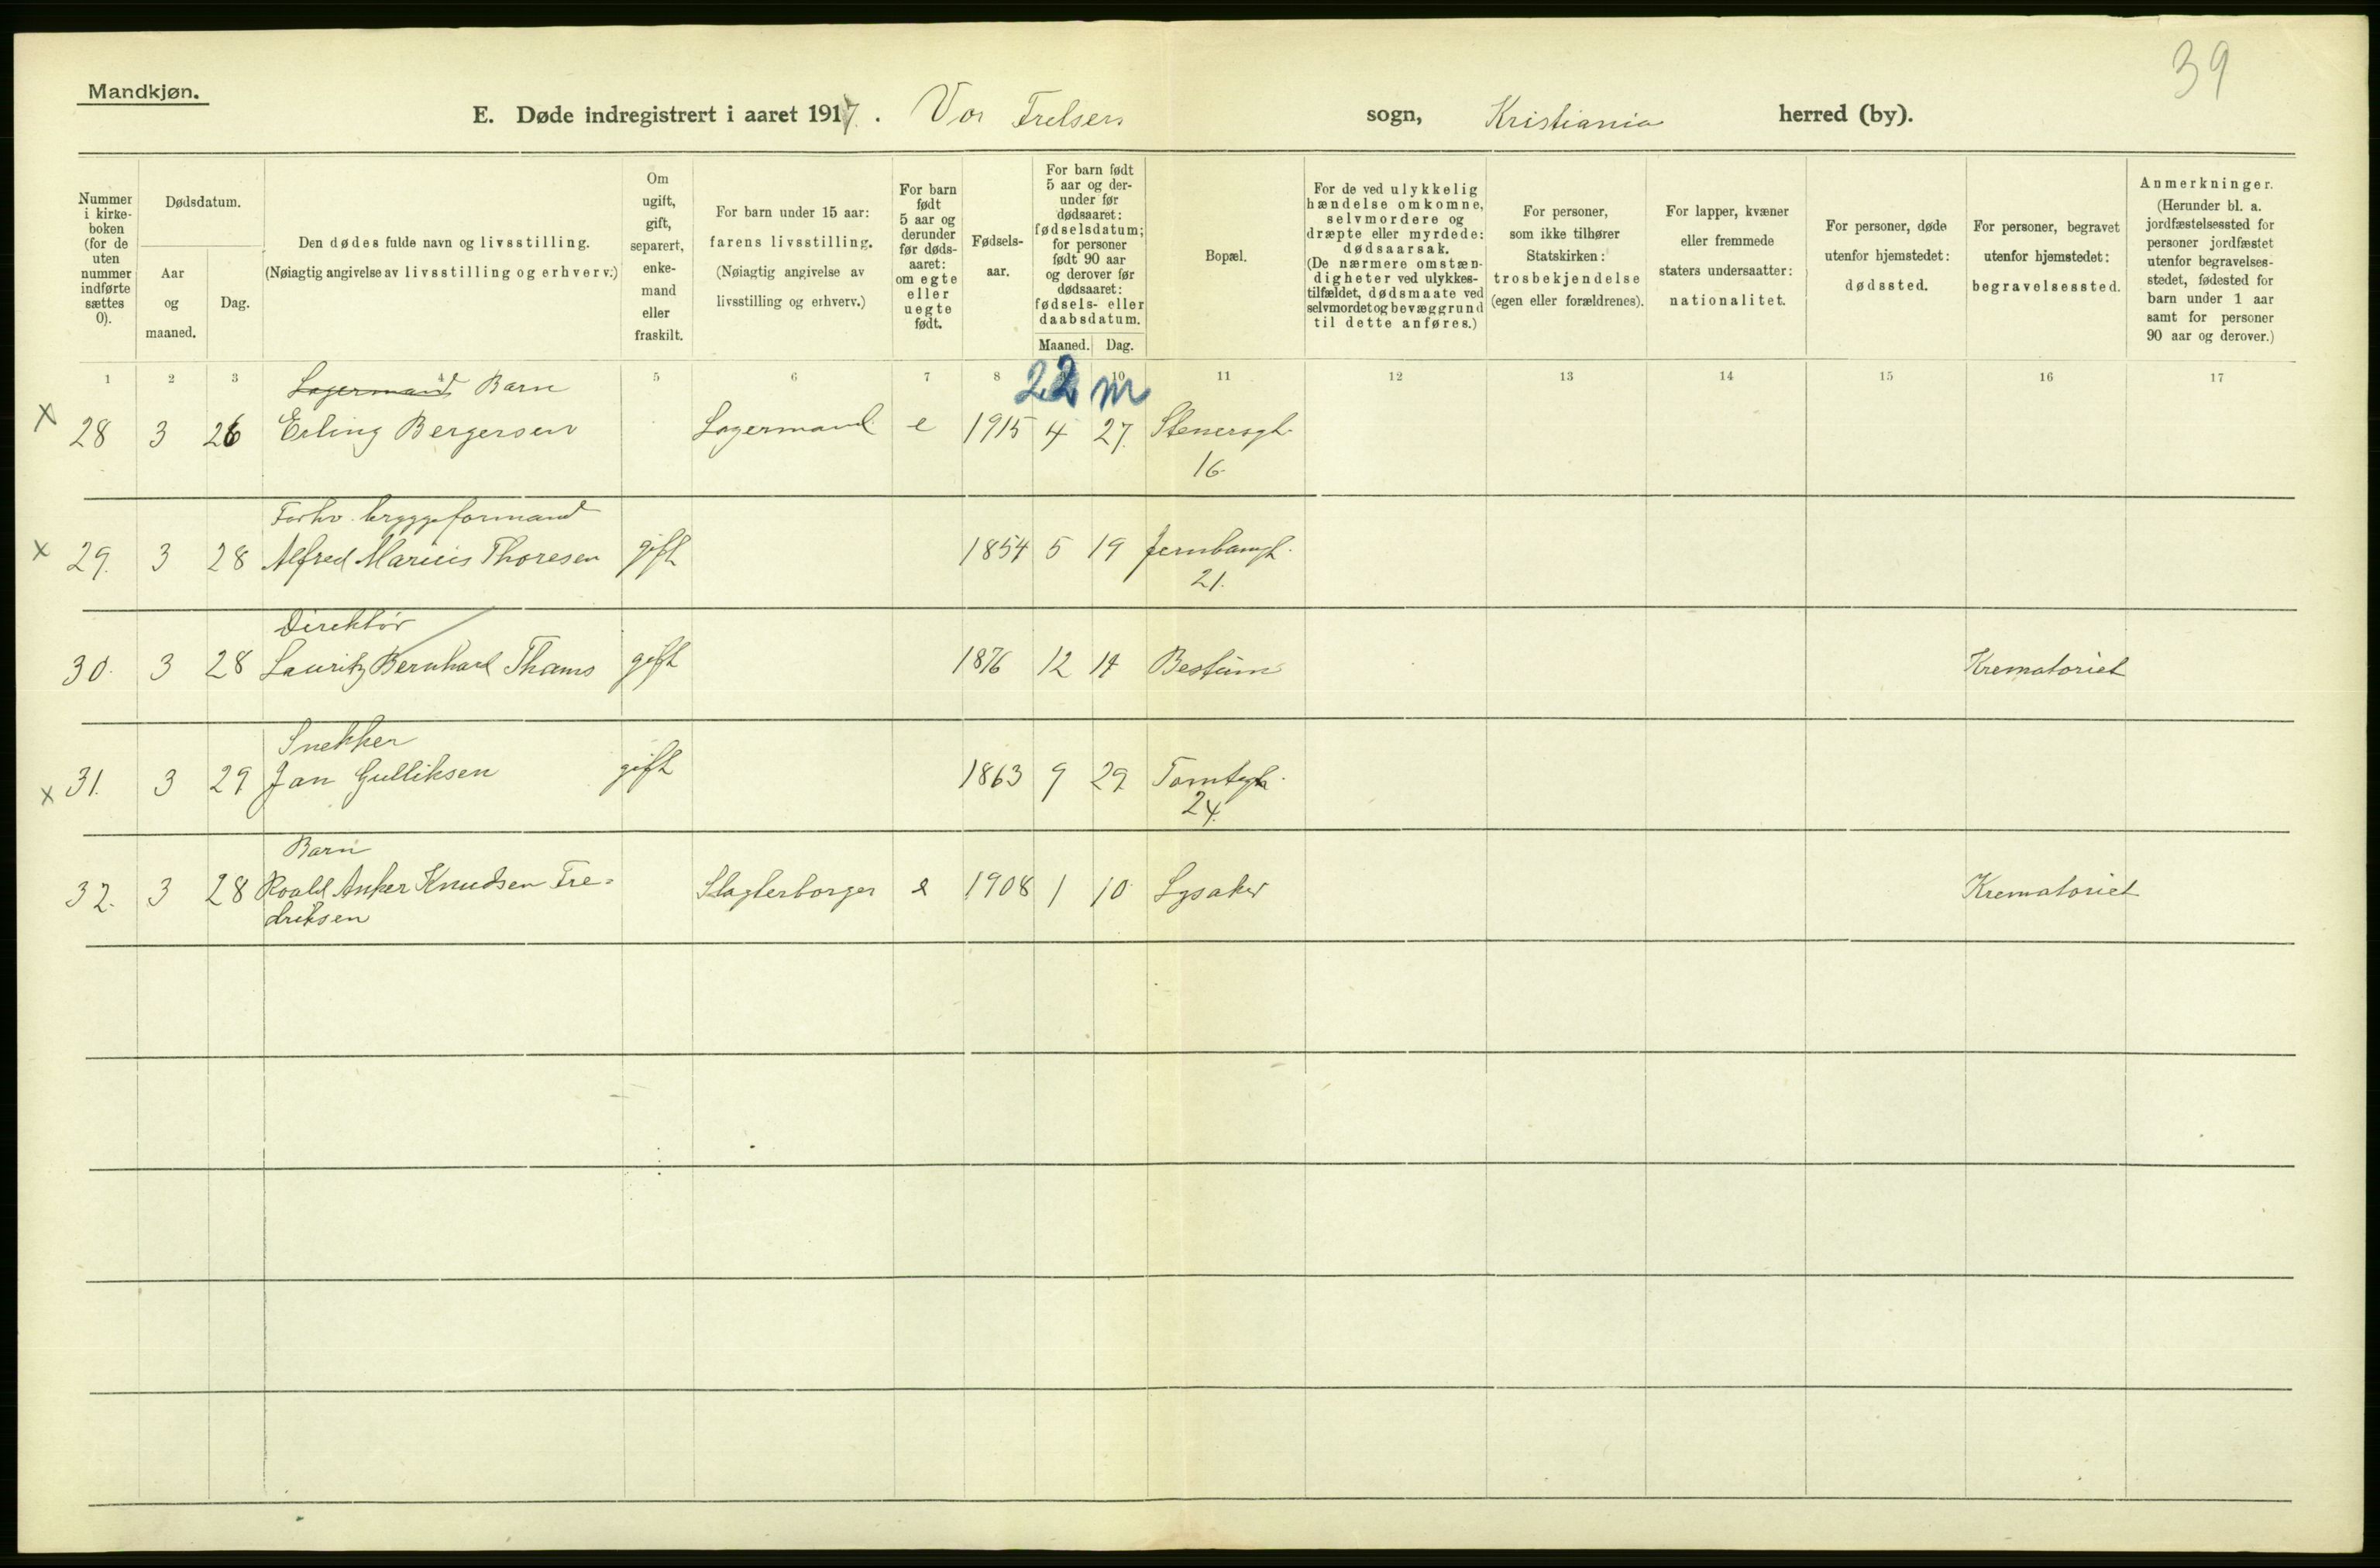 39
Mandkjøn.
E. Døde indregistrert i aaret 1917. Vor Frelsers sogn, Kristiania herred (by).
Nummer i kirke-boken (for de uten nummer indførte sættes 0).
Dødsdatum.
Aar og maaned.
Dag.
Den dødes fulde navn og livsstilling.
(Nøiagtig angivelse av livsstilling og erhverv.)
Om ugift, gift, separert, enke-mand eller fraskilt.
For barn under 15 aar: farens livsstilling.
(Nøiagtig angivelse av livsstilling og erhverv.)
For barn født 5 aar og derunder før døds-aaret: om egte eller uegte født.
Fødsels-aar.
For barn født 5 aar og der-under før dødsaaret: fødselsdatum; for personer født 90 aar og derover før dødsaaret: fødsels- eller daabsdatum.
Maaned. Dag.
Bopæl.
For de ved ulykkelig hændelse omkomne, selvmordere og dræpte eller myrdede: dødsaarsak.
(De nærmere omstæn-digheter ved ulykkes-tilfældet, dødsmaate ved selvmordet og bevæggrund til dette anføres.)
For personer, som ikke tilhører Statskirken: trosbekjendelse (egen eller forældrenes).
For lapper, kvæner eller fremmede staters undersaatter: nationalitet.
For personer, døde utenfor hjemstedet: dødssted.
For personer, begravet utenfor hjemstedet: begravelsessted.
Anmerkninger.
(Herunder bl. a. jordfæstelsessted for personer jordfæstet utenfor begravelses-stedet, fødested for barn under 1 aar samt for personer 90 aar og derover.)
1 2 3 4 5 6 7 8 9 10 11 12 13 14 15 16 17
22 m
Lagermand Barn
x 28 3 26 Erling Bergersen Lagermand e 1915 4 27. Stenersgt.
16.
Forhv. bryggeformand
x 29. 3 28 Alfred Marius Thoresen gift 1854 5 19 Jernbangt.
21.
Direktør
30. 3 28 Lauritz Bernhard Thams gift 1876 12 14 Bestum Krematoriet
Snekker
x 31. 3 29 Jan Gulliksen gift 1863 9 29 Tomtegt.
24.
Barn
32. 3 28 Roald Anker Knudsen Fre- Slagterborger e 1908 1 10 Lysaker Krematoriet
driksen